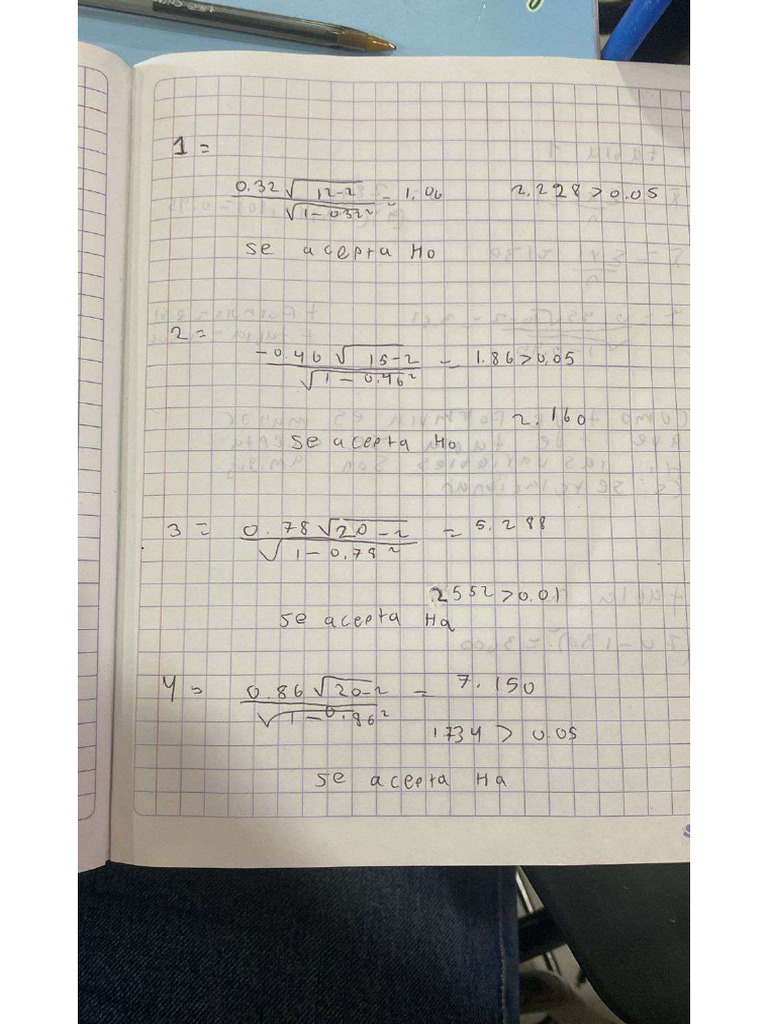 1=
0.32 √12-2 / √1-0.32² = 1.06 2.228 > 0.05
se acepta Ho
2=
-0.46 √15-2 / √1-0.46² = 1.86 > 0.05
2.160
se acepta Ho
3= 0.78 √20-2 / √1-0.78² = 5.288
2552 > 0.01
se acepta Ha
4= 0.86 √20-2 / √1-0.86² = 7.150
1734 > 0.05
se acepta Ha